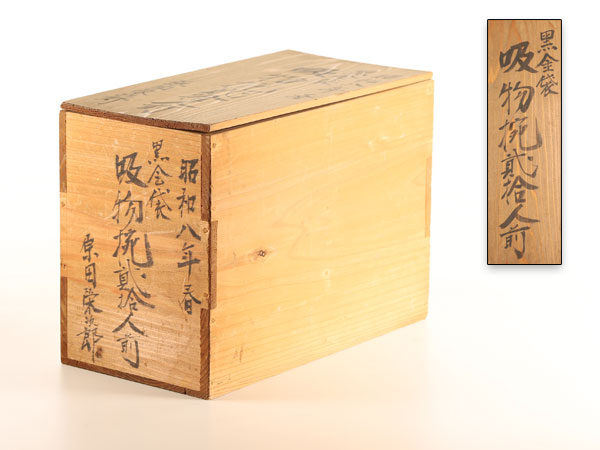 昭和八年春
黒金袋
吸物椀弐拾人前
原田栄次郎
黒金袋
吸物椀貳拾人前